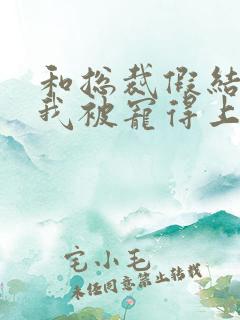 和总裁假结
我被宠得上
宅小毛
未经同意禁止转载